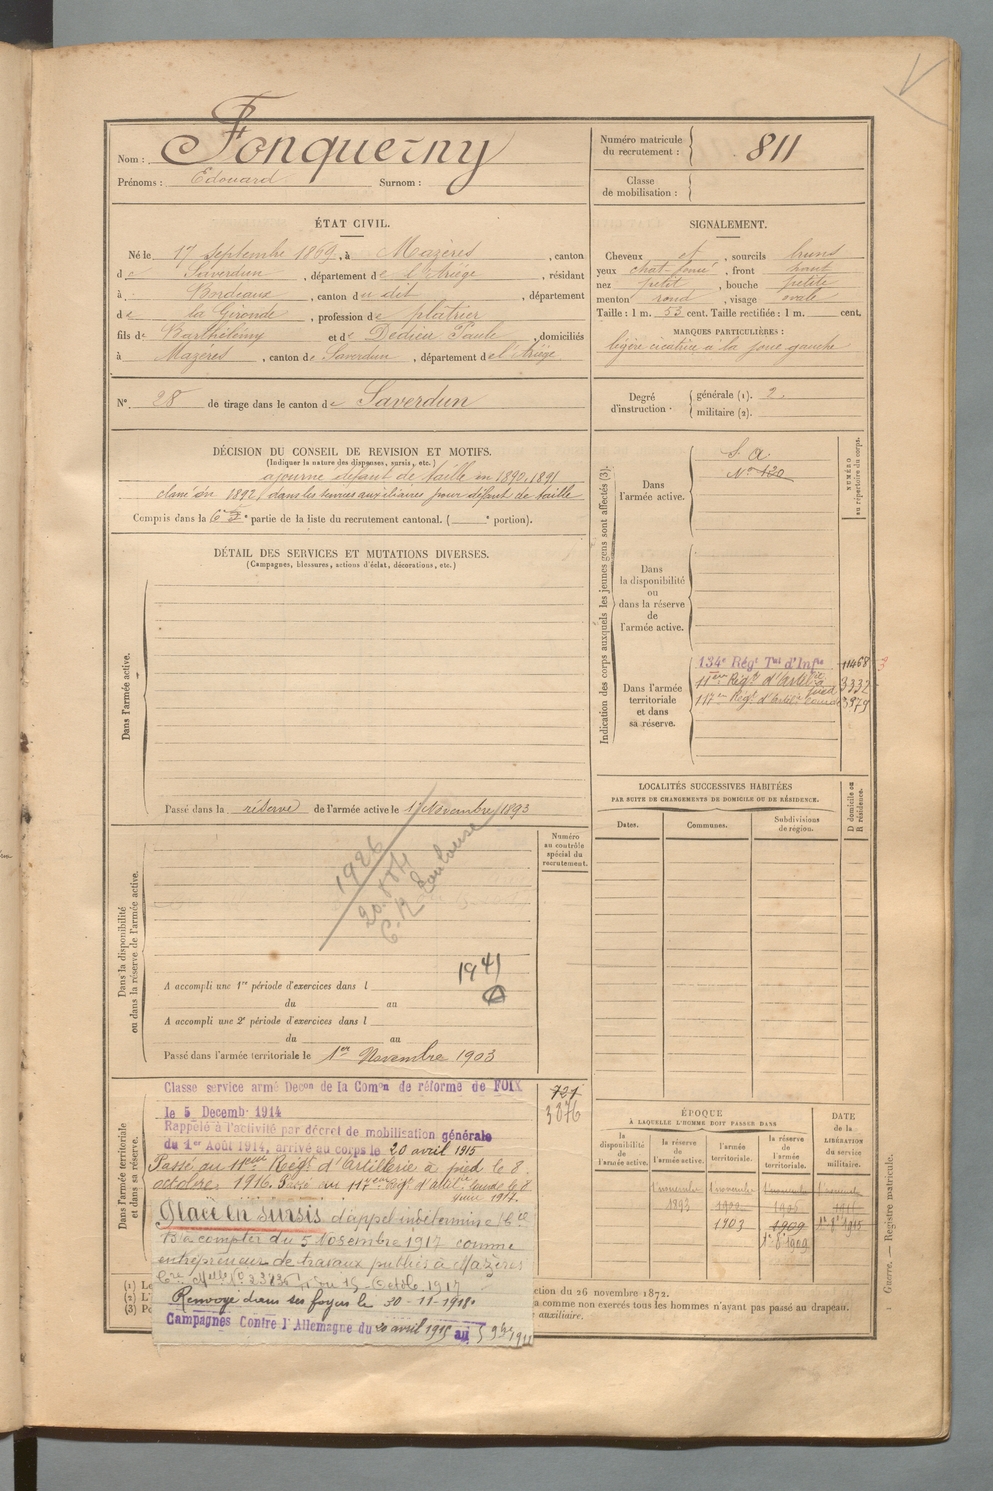 Nom : Fonquerny
Prénoms : Edouard Surnom :
Numéro matricule du recrutement : 811
Classe de mobilisation :
ÉTAT CIVIL.
Né le 17 Septembre 1869, à Mazères, canton
de Saverdun, département de l'Ariège, résidant
à Bordeaux, canton du dit, département
de la Gironde, profession de plâtrier
fils de Barthélémy et de Dedieu Paule, domiciliés
à Mazères, canton de Saverdun, département de l'Ariège
N° 28 de tirage dans le canton de Saverdun
SIGNALEMENT.
Cheveux et, sourcils bruns
yeux chat. foncé, front haut
nez petit, bouche petite
menton rond, visage ovale
Taille : 1 m. 53 cent. Taille rectifiée : 1 m. cent.
MARQUES PARTICULIÈRES :
légère cicatrice à la joue gauche
Degré d'instruction. générale (1). 2.
militaire (2).
DÉCISION DU CONSEIL DE REVISION ET MOTIFS.
(Indiquer la nature des dispenses, sursis, etc.)
ajourné défaut de taille en 1890, 1891
classé en 1892 dans les services auxiliaires pour défaut de taille
Compris dans la 6e partie de la liste du recrutement cantonal. ( e portion).
DÉTAIL DES SERVICES ET MUTATIONS DIVERSES.
(Campagnes, blessures, actions d'éclat, décorations, etc.)
Dans l'armée active.
Passé dans la réserve de l'armée active le 1er Novembre 1893
Numéro au contrôle spécial du recrutement.
Dans la disponibilité ou dans la réserve de l'armée active.
1926
20.884
C.R Toulouse
1941
A accompli une 1re période d'exercices dans l
du au
A accompli une 2e période d'exercices dans l
du au
Passé dans l'armée territoriale le 1er Novembre 1903
Dans l'armée territoriale et dans sa réserve.
Classe service armé Decon de la Comon de réforme de FOIX
le 5 Decemb. 1914
Rappelé à l'activité par décret de mobilisation générale
du 1er Août 1914, arrivé au corps le 20 avril 1915
Passé au 11eme Régt d'Artillerie à pied le 8
octobre 1916. Passé au 117eme Régt d'artie lourde le 8
juin 1917.
Placé en sursis d'appel indéterminé
B à compter du 5 Novembre 1917 comme
entrepreneur de travaux publics à Mazères
du 15 Octob. 1917
Renvoyé dans ses foyers le 30-11-1918.
Campagnes Contre l'Allemagne du 20 avril 1915 au 5 9bre 191
721
3876
Indication des corps auxquels les jeunes gens sont affectés (3).
NUMÉRO au répertoire du corps.
Dans l'armée active.
S. A
N° 120
Dans la disponibilité ou dans la réserve de l'armée active.
Dans l'armée territoriale et dans sa réserve.
134e Régt Tal d'Infie 11468
11eme Régt d'Artillie à pied 3332
117eme Régt d'Artie lourde 3879
LOCALITÉS SUCCESSIVES HABITÉES
PAR SUITE DE CHANGEMENTS DE DOMICILE OU DE RÉSIDENCE.
Dates. Communes. Subdivisions de région. D domicile ou R résidence.
ÉPOQUE
À LAQUELLE L'HOMME DOIT PASSER DANS
DATE de la LIBÉRATION du service militaire.
la disponibilité de l'armée active. la réserve de l'armée active. l'armée territoriale. la réserve de l'armée territoriale.
1 novembre 1893
1 novembre
1903
1909
1er 8bre 1909
1er 8bre 1915
ction du 26 novembre 1872.
a comme non exercés tous les hommes n'ayant pas passé au drapeau.
auxiliaire.
(1) Le
(2) L'i
(3) Po
Guerre. — Registre matricule.